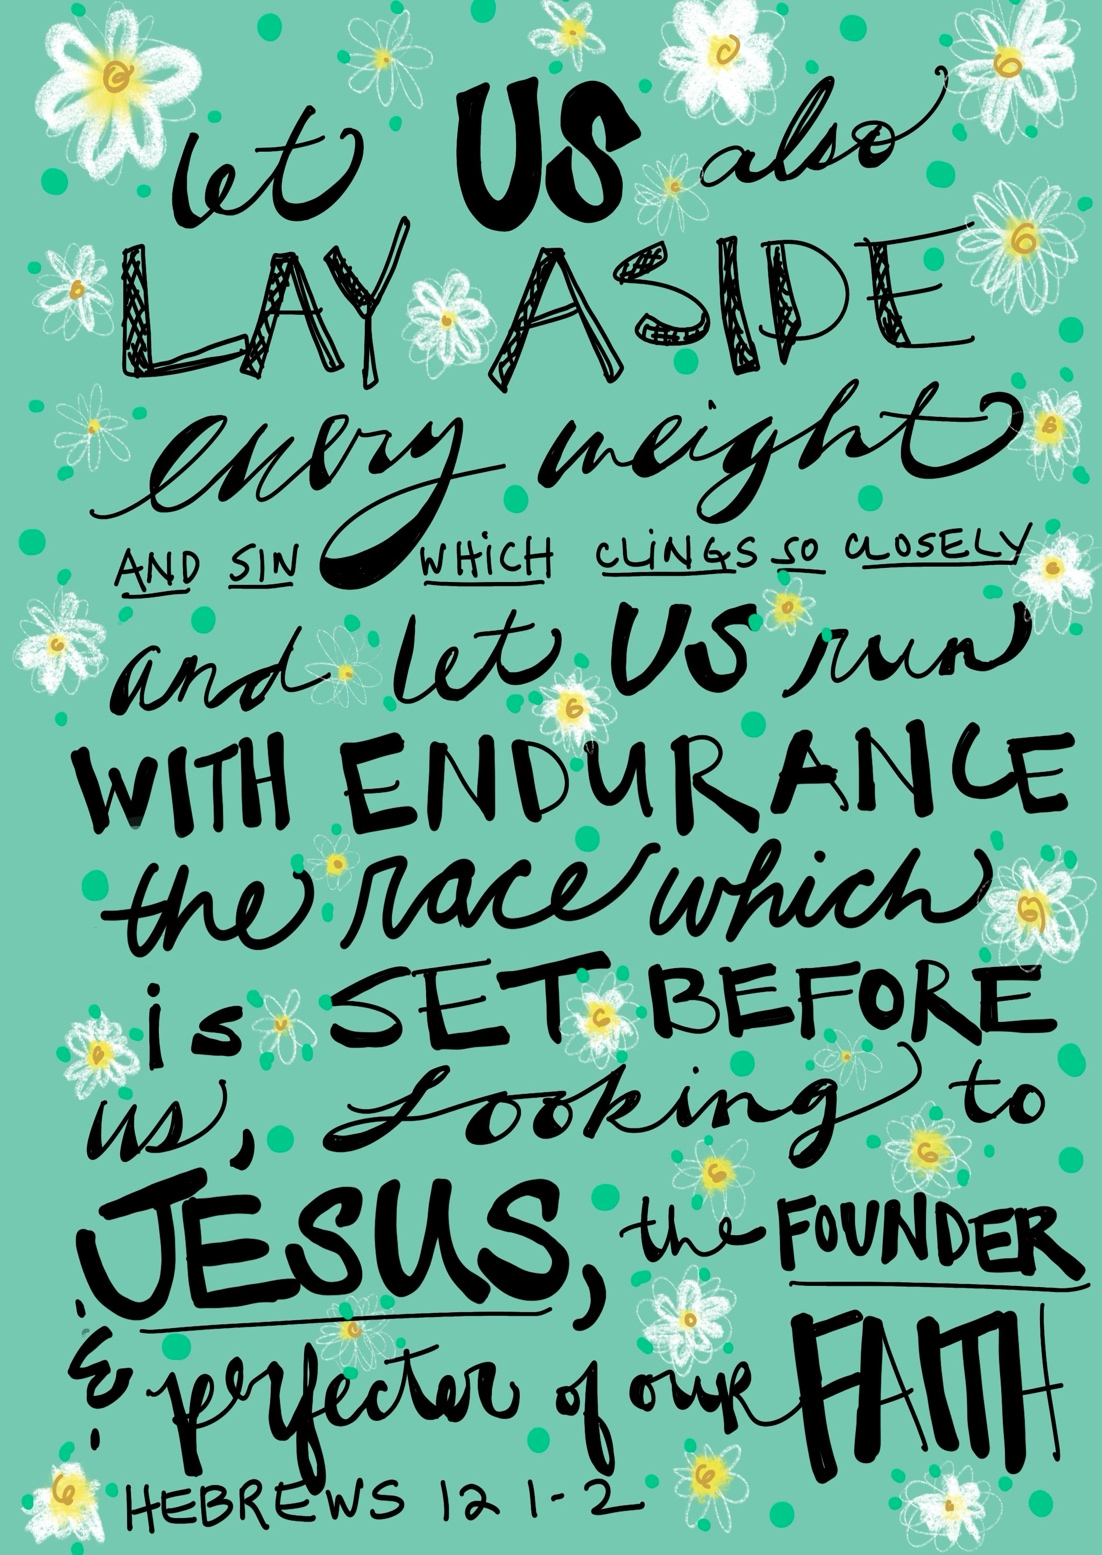 let US also
LAY ASIDE
every weight
AND SIN WHiCH CLiNGS SO CLOSELY
and let US run
WITH ENDURANCE
the race which
is SET BEFORE
us, Looking to
JESUS, the FOUNDER
& perfecter of our FAITH
HEBREWS 12 1-2